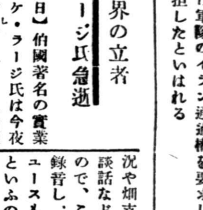 軍隊のイラン通過權を要求し
したといはれる
界の立者
ージ氏急逝
日】伯國著名の實業
ケ・ラージ氏は今夜
況や畑支
談話など
ので、こ
錄音し、
ュースも
といふの